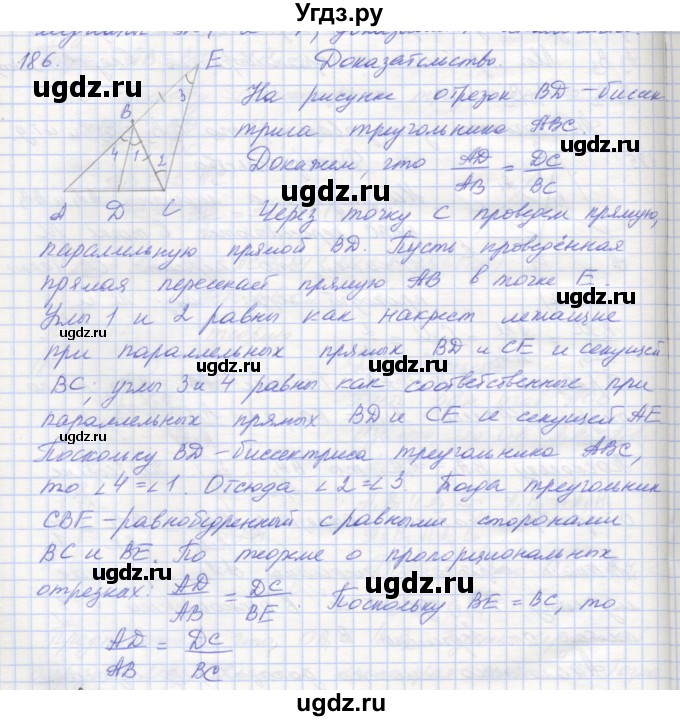 Угдз.ру
186.
E
Доказательство.
3
На рисунке отрезок BD – биссек
B
триса треугольника ABC.
4 1 2
Докажем, что AD/AB = DC/BC
A D C
Через точку C проведем прямую,
паралельную прямой BD. Пусть проведённая
прямая пересекает прямую AB в точке E.
Углы 1 и 2 равны как накрест лежащие
при параллельных прямых BD и CE и секущей
BC; углы 3 и 4 равны как соответственные при
параллельных прямых BD и CE и секущей AE
Поскольку BD – биссектриса треугольника ABC,
то ∠4=∠1. Отсюда ∠2=∠3 Тогда треугольник
CBE – равнобедренный с равными сторонами
BC и BE. По теореме о пропорциональных
отрезках: AD/AB = DC/BE. Поскольку BE = BC, то
AD/AB = DC/BC
udgz.ru
udgz.ru
udgz.ru
udgz.ru
udgz.ru
udgz.ru
udgz.ru
udgz.ru
udgz.ru
udgz.ru
udgz.ru